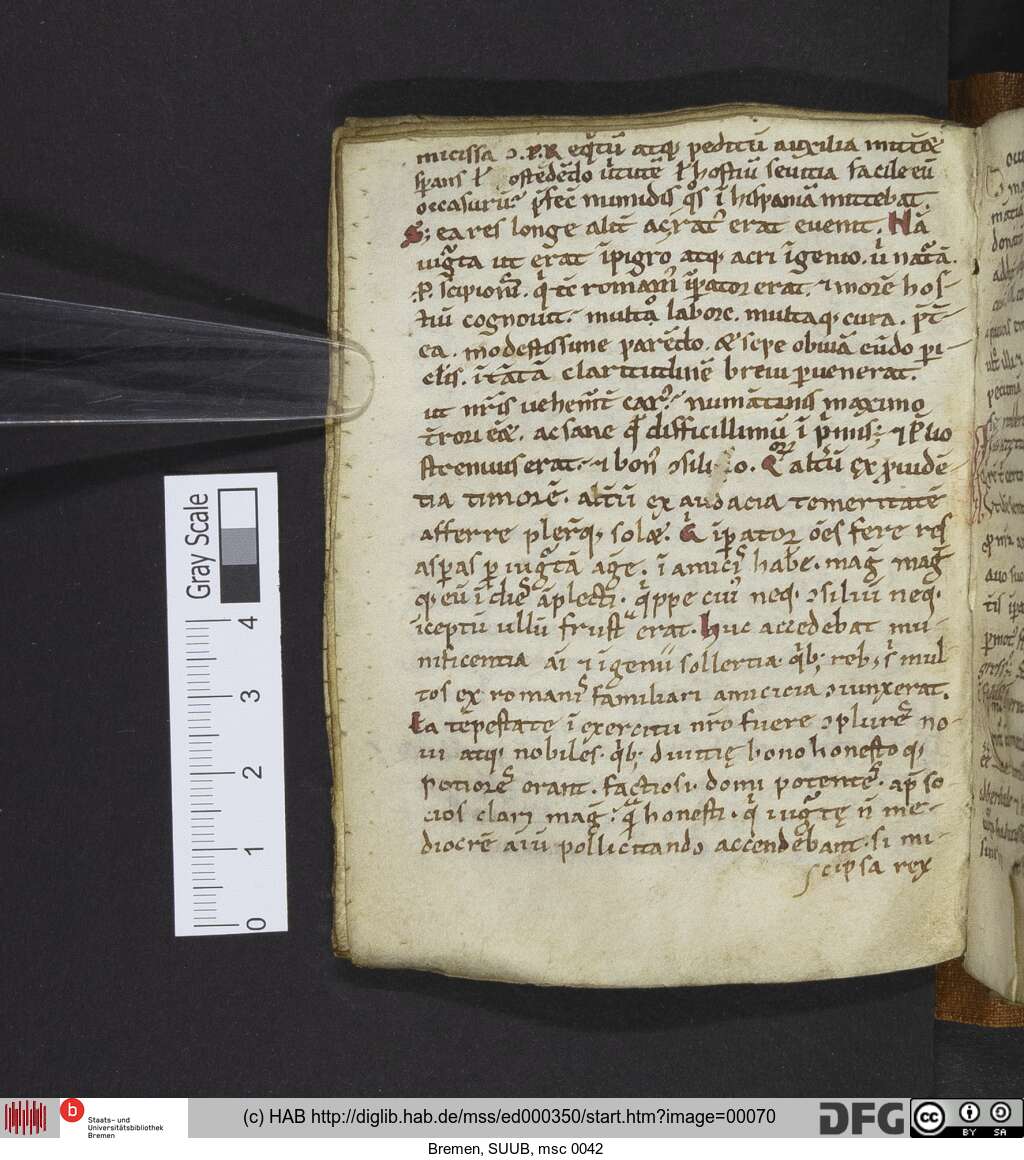 micissa ɔ.P.R eq̄tū atq; peditū auxilia mittæ
sp̄ans ł ostēdēdo ũtutē ł hostiū seuitia facile eū
occasurū. p̄fec numidis q̊s ī hispaniā mittebat.
S; ea res longe alit̄ ac rat erat euenit. Nā
iugr̄ta ut erat īpigro atq; acri īgenio. ũ natᵃ.
.P. scipiōni. q̊ tc̄ romanī īp̄ator erat. ⁊ morē hos-
tiū cognouit. multo labore. multaq; cura. p̄t-
ea. modestissime parēdo. & sepe obuiā eūdo pi-
clis. ītātā claritudinē breui puenerat.
ut nr̄is uehem̄t car᷒. numātinis maximo
t̄rori eēt. ac sane qđ difficillimū ī p̄mis; ⁊ p̄lio
strenuus erat. ⁊ bon᷒ ɔsilio. Qᵒꝝ altū ex p̄udē-
tia timorē. altū ex audacia temeritatē
afferre plerūq; solæ. Q̄ īp̄ator oēs fere res
asp̄as p iugr̄tā age. ī amicis habē. mag̃ mag̃
q; eū ī dies āplecti. q̊ppe cui᷒ neq; ɔsiliū neq;
īceptū ullū frustᵃ erat. Huc accedebat mu-
nificentia aī ⁊ īgenii sollertia. q̊b; reb; s᷒ mul
tos ex romanis familiari amicicia ɔiunxerat.
Ea tēpestate ī exercitu nr̄o fuere ɔplures no-
ui atq; nobiles. q̊b; diuitię bono honesto q;
potiores erant. factiosi. domi potentes. ap̄ so
cios clari mag̃. quā honesti. q̊ iugr̄tę n̄ me-
diocrē aīū pollicitando accendebant. si mi-
scipsa rex
Gray Scale
4
3
2
1
0
b Staats- und
Universitätsbibliothek
Bremen
(c) HAB http://diglib.hab.de/mss/ed000350/start.htm?image=00070
DFG
cc BY SA
Bremen, SUUB, msc 0042